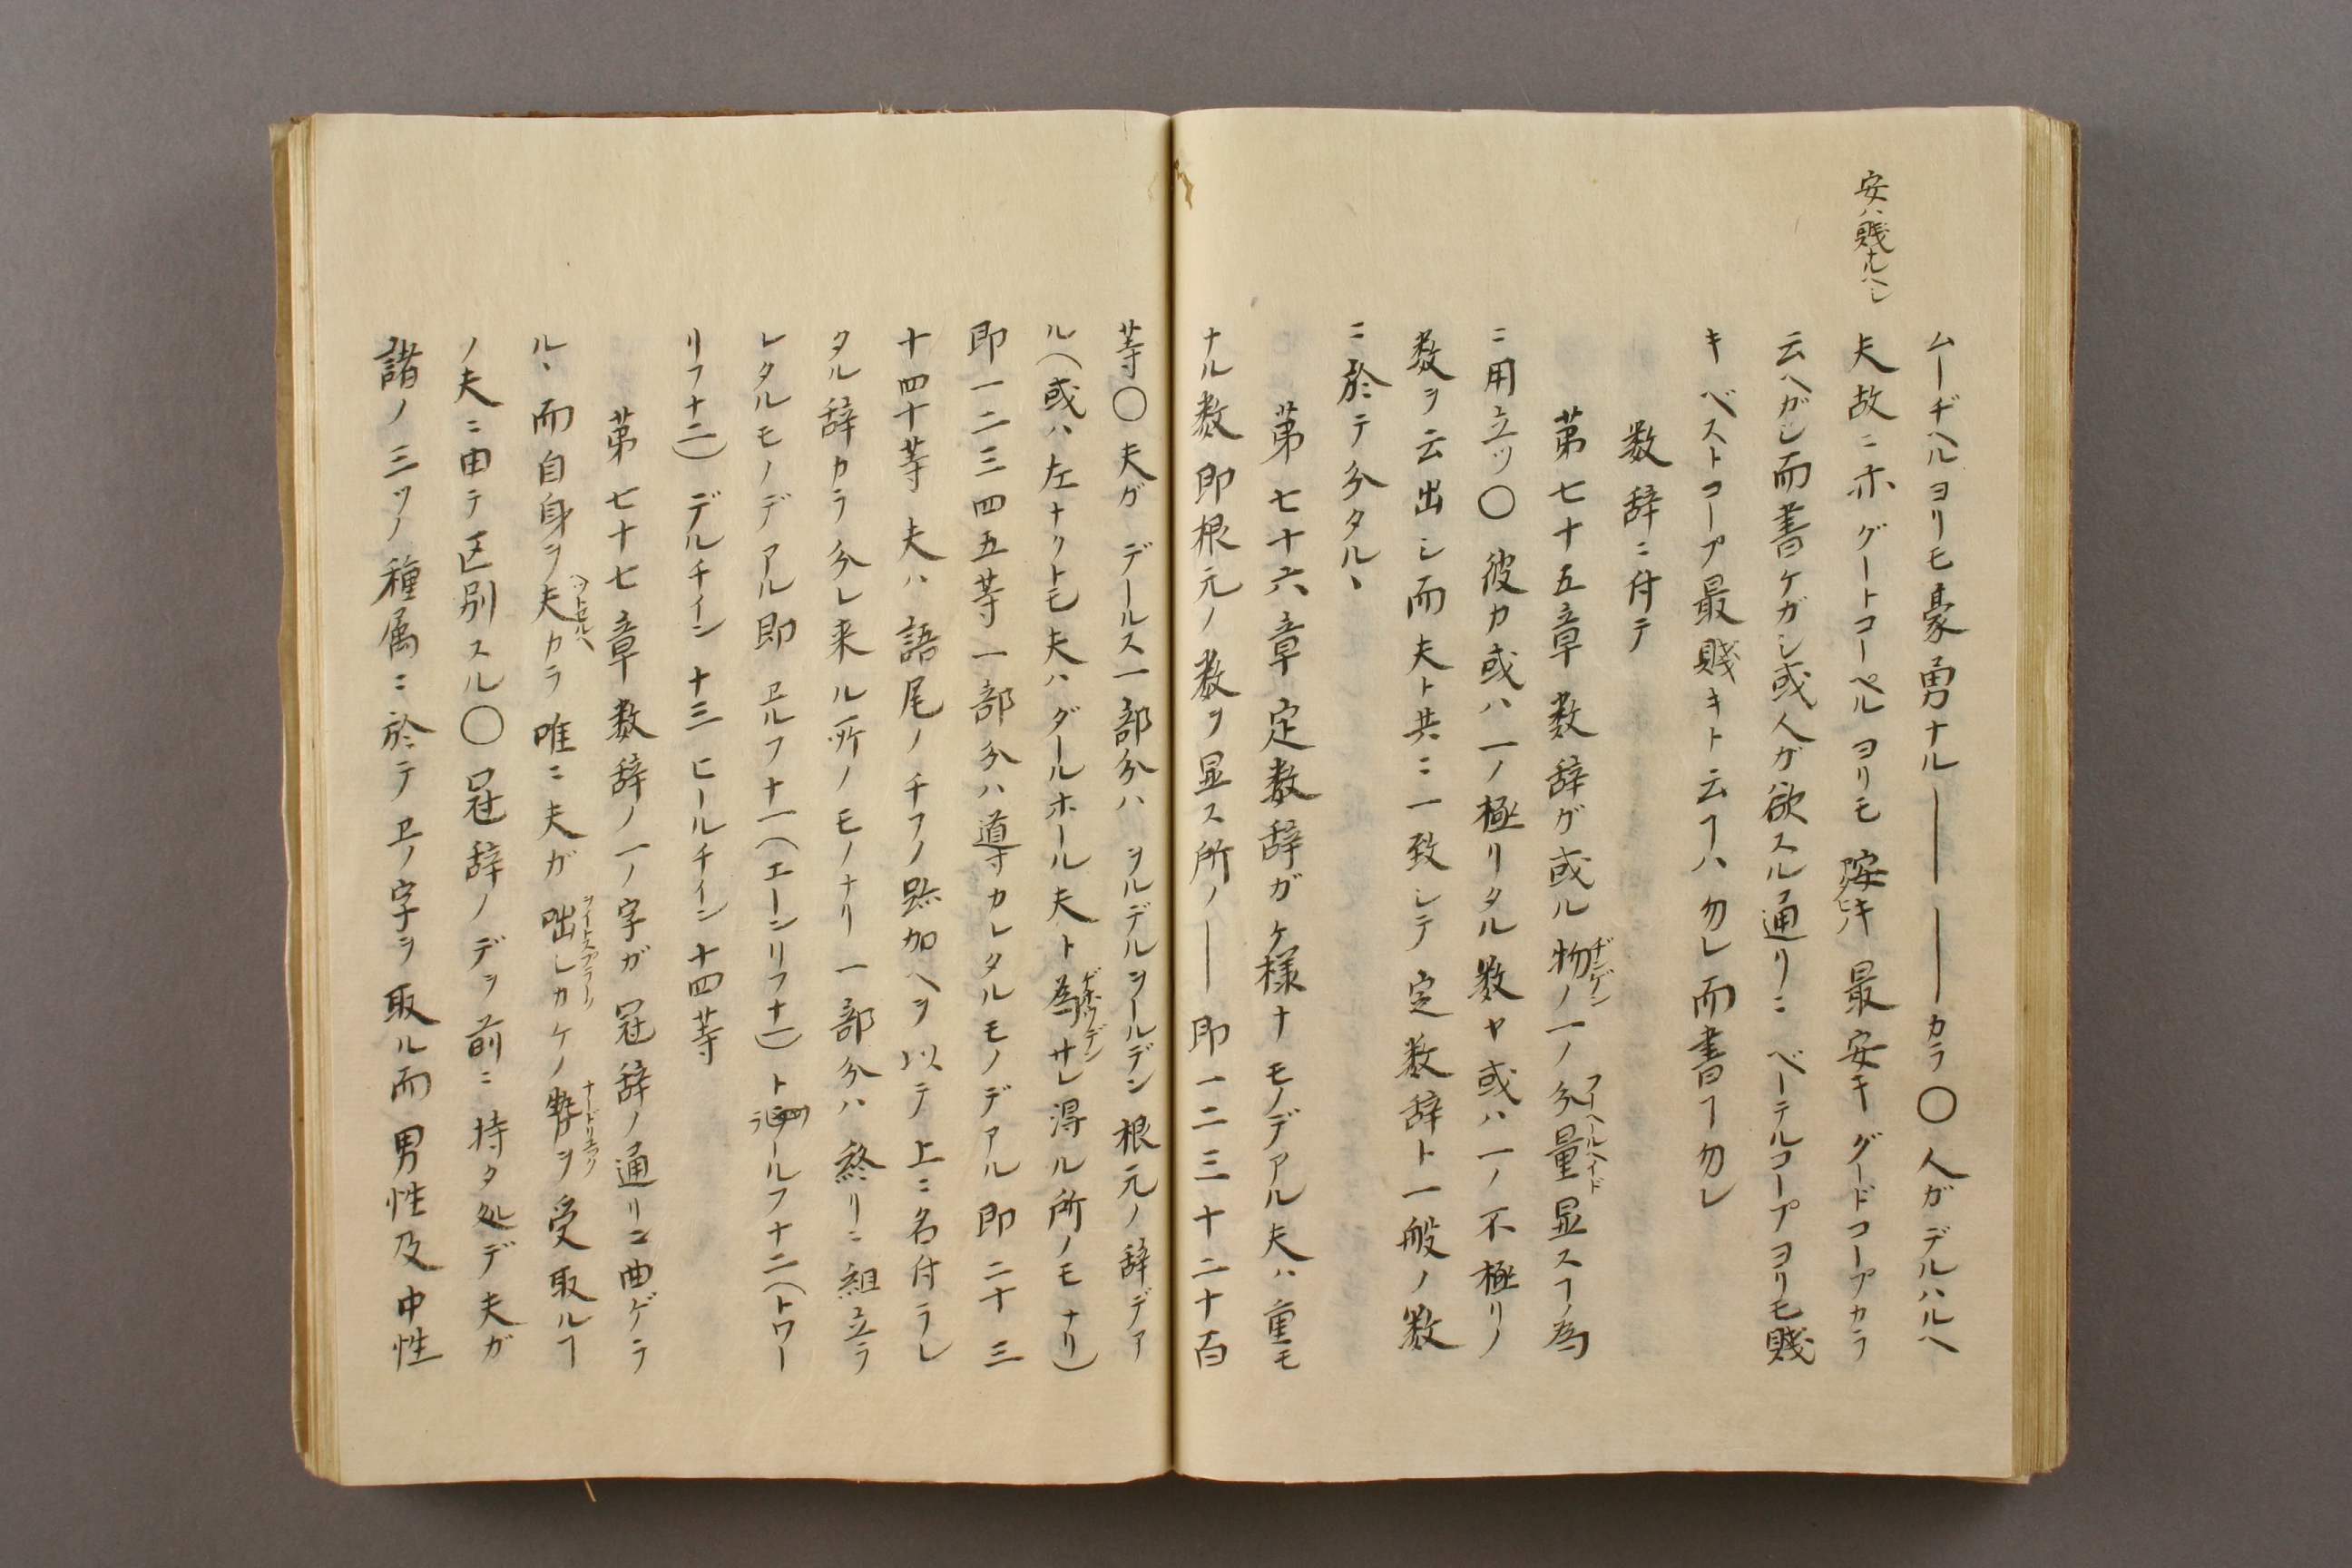 安ハ賤ナルヘシ
ムーヂヘルヨリモ豪勇ナル――――カラ〇人ガデルハルヘ
夫故ニ亦グートコーペルヨリモ安キ最安キグードコープカラ
云ヘガシ而書ケガシ或人ガ欲スル通リニベーテルコープヨリモ賤
キベストコープ最賤キト云ヿハ勿レ而書ヿ勿レ
数辞ニ付テ
第七十五章数辞ガ或ル物ノ一ノ分量显スヿノ為
ヂンゲン
フーヘールヘイド
ニ用立ツ〇彼カ或ハ一ノ極リタル数ヤ或ハ一ノ不極リノ
数ヲ云出シ而夫ト共ニ一致シテ定数辞ト一般ノ数
ニ於テ分タルヽ
第七十六章定数辞ガケ様ナモノデアル夫ハ重モ
ナル数即根元ノ数ヲ显ス所ノ――即一二三十二十百
等〇夫ガデールス一部分ハヲルデルヲールデン根元ノ辞デア
ル(或ハ左ナクトモ夫ハダールホール夫ト為サレ得ル所ノモナリ)
即一二三四五等一部分ハ導カレタルモノデアル即二十三
十四十等夫ハ語尾ノチフノ跡加ヘヲ以テ上ニ名付ラレ
タル辞カラ分レ来ル所ノモノナリ一部分ハ終リニ組立ラ
レタルモノデアル即ヱルフ十一(エーンリフ十一)トワールフ十二(トワー
リフ十二)デルチイン十三ヒールチイン十四等
第七十七章数辞ノ一ノ字ガ冠辞ノ通リニ曲ゲラ
ルヽ而自身ヲ夫カラ唯ニ夫ガ咄シカケノ響ヲ受取ルヿ
ヲイトスプラーク
ナードリュック
ノ夫ニ由テ区別スル〇冠辞ノデヲ前ニ持タ処デ夫ガ
諸ノ三ツノ種属ニ於テヱノ字ヲ取ル而男性及中性